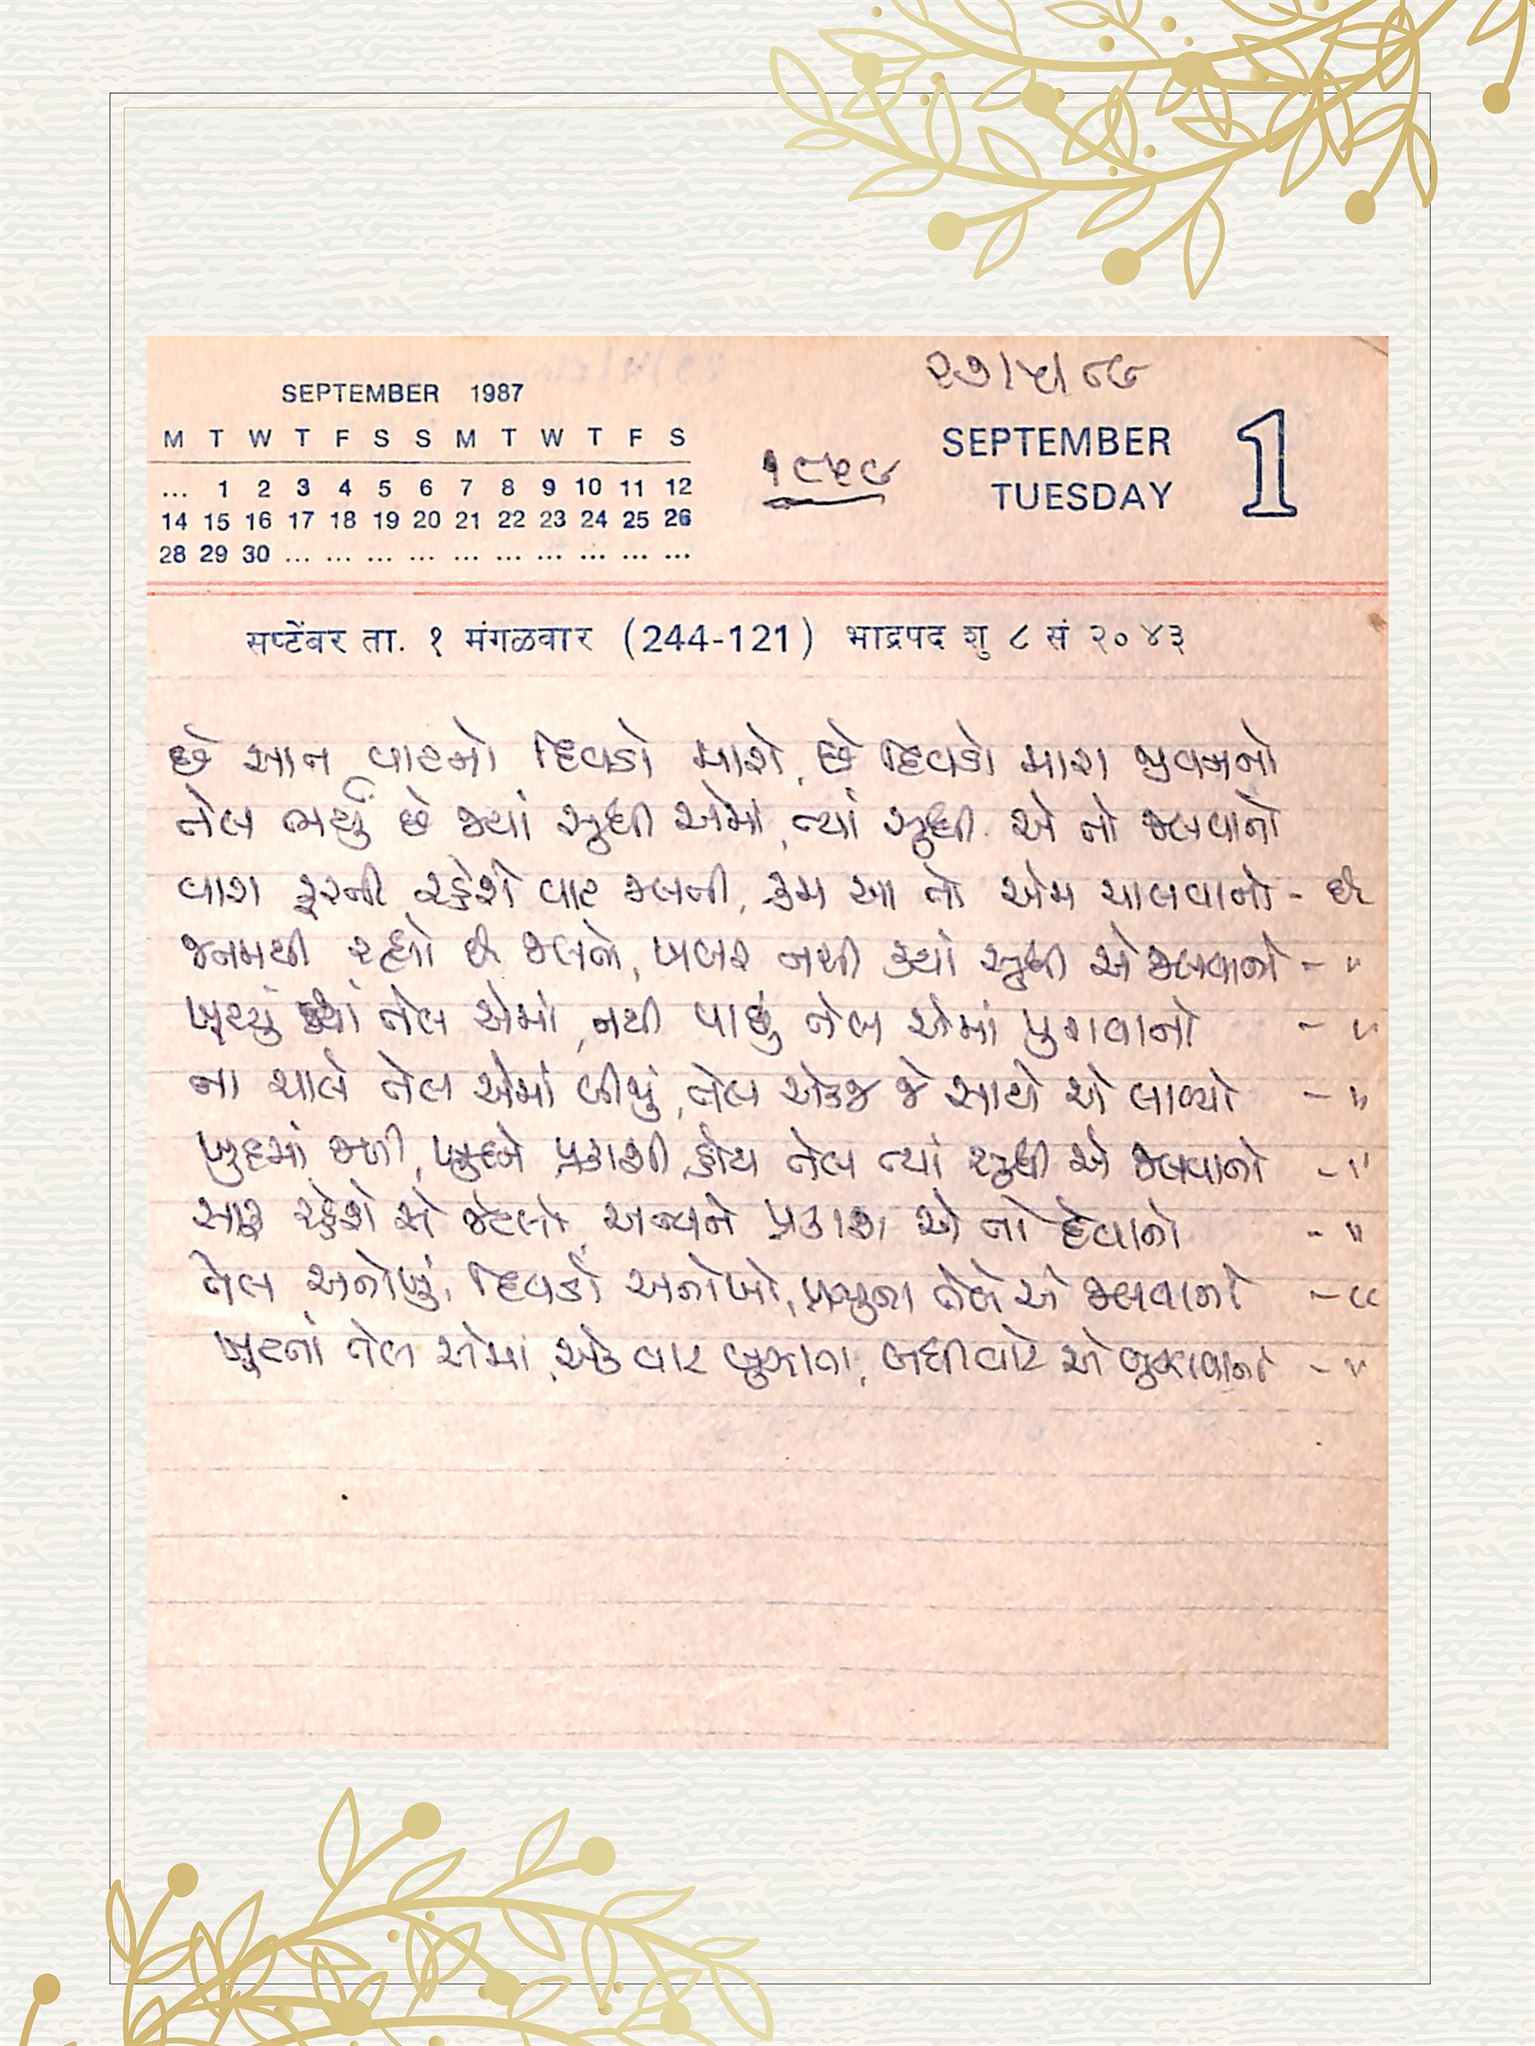 ૨૭/૫/૮૯
SEPTEMBER 1987
M T W T F S S M T W T F S
... 1 2 3 4 5 6 7 8 9 10 11 12
14 15 16 17 18 19 20 21 22 23 24 25 26
28 29 30 ... ... ... ... ... ... ... ... ... ...
SEPTEMBER
TUESDAY
1
सप्टेंबर ता. १ मंगळवार (244-121) भाद्रपद शु ८ सं २०४३
છે સાત વાટનો દિવડો મારો, છે દિવડો મારા જીવનનો
તેલ ભર્યું છે જ્યાં સુધી એમાં, ત્યાં સુધી એ તો જલવાનો
વારા ફરતી રહેશે વાટ જલતી, ક્રમ આ તો એમ ચાલવાનો - છે
જનમથી રહ્યો છે જલતો, ખબર નથી ક્યાં સુધી એ જલવાનો - "
ખૂટયું જ્યાં તેલ એમાં, નથી પાછું તેલ એમાં પુરાવાનો - "
ના ચાલે તેલ એમાં બીજું, તેલ એકજ જે સાથે એ લાવ્યો - "
ખુદમાં જળી, ખુદને પ્રકાશી, હોય તેલ ત્યાં સુધી એ જલવાનો - "
સાફ રહેશે એ જેટલો, અન્યને પ્રકાશ એ તો દેવાનો - "
તેલ અનોખું, દિવડો અનોખો, પ્રભુના તેલે એ જલવાનો - "
ખૂટતાં તેલ એમાં, એક વાટ બુઝાતા, બધી વાટે એ બુઝાવાનો - "